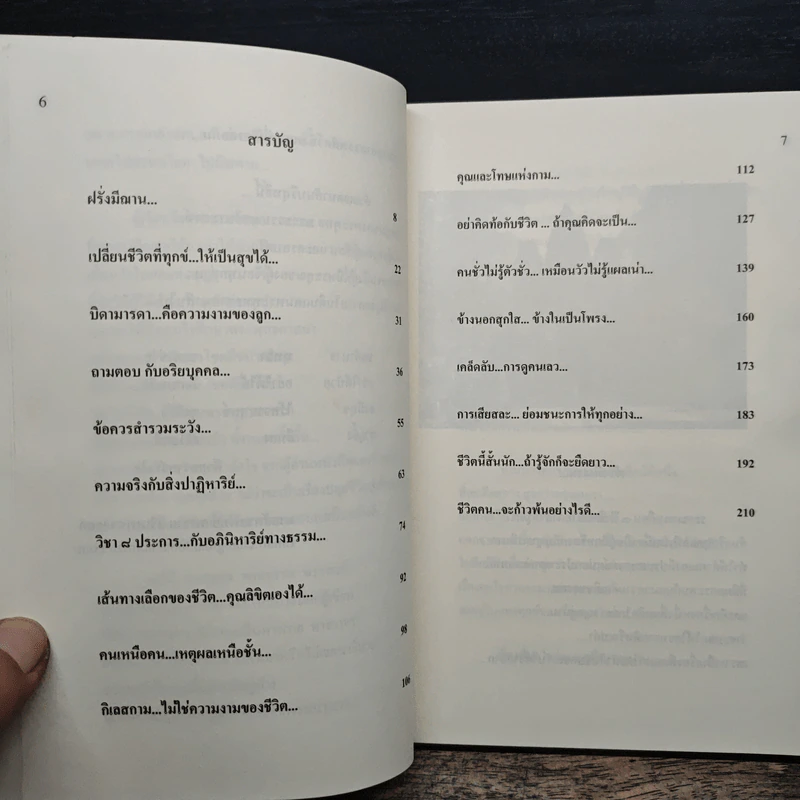 6
สารบัญ
ฝรั่งมีฌาน... 8
เปลี่ยนชีวิตที่ทุกข์...ให้เป็นสุขได้... 22
บิดามารดา...คือความงามของลูก... 31
ถามตอบ กับอริยบุคคล... 36
ข้อควรสำรวมระวัง... 55
ความจริงกับสิ่งปาฏิหาริย์... 63
วิชา ๘ ประการ...กับอภินิหาริย์ทางธรรม... 74
เส้นทางเลือกของชีวิต...คุณลิขิตเองได้... 92
คนเหนือคน...เหตุผลเหนือชั้น... 98
กิเลสกาม...ไม่ใช่ความงามของชีวิต... 106
7
คุณและโทษแห่งกาม... 112
อย่าคิดท้อกับชีวิต ... ถ้าคุณคิดจะเป็น... 127
คนชั่วไม่รู้ตัวชั่ว... เหมือนวัวไม่รู้แผลเน่า... 139
ข้างนอกสุกใส... ข้างในเป็นโพรง... 160
เคล็ดลับ...การดูคนเลว... 173
การเสียสละ... ย่อมชนะการให้ทุกอย่าง... 183
ชีวิตนี้สั้นนัก...ถ้ารู้จักก็จะยืดยาว... 192
ชีวิตคน...จะก้าวพ้นอย่างไรดี... 210